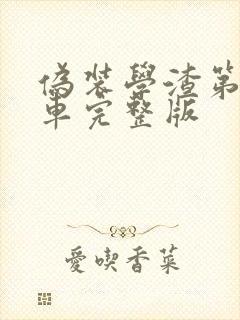 偽裝學渣第
車完整版
愛喫香菜